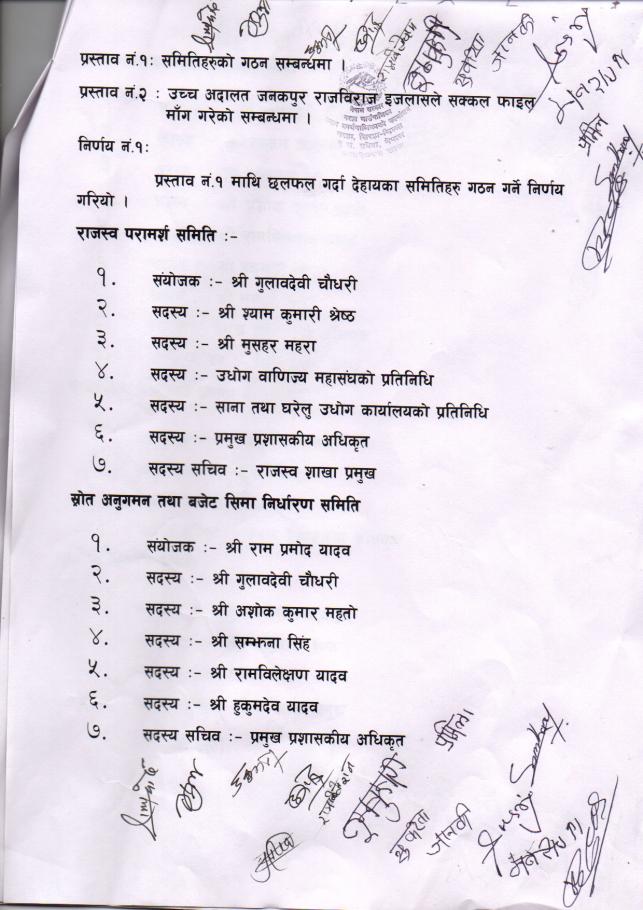 प्रस्ताव नं.१: समितिहरुको गठन सम्बन्धमा ।
प्रस्ताव नं.२ : उच्च अदालत जनकपुर राजविराज इजलासले सक्कल फाइल
माँग गरेको सम्बन्धमा ।
निर्णय नं.१:
प्रस्ताव नं.१ माथि छलफल गर्दा देहायका समितिहरु गठन गर्ने निर्णय
गरियो ।
राजस्व परामर्श समिति :-
१. संयोजक :- श्री गुलावदेवी चौधरी
२. सदस्य :- श्री श्याम कुमारी श्रेष्ठ
३. सदस्य :- श्री मुसहर महरा
४. सदस्य :- उधोग वाणिज्य महासंघको प्रतिनिधि
५. सदस्य :- साना तथा घरेलु उधोग कार्यालयको प्रतिनिधि
६. सदस्य :- प्रमुख प्रशासकीय अधिकृत
७. सदस्य सचिव :- राजस्व शाखा प्रमुख
स्रोत अनुगमन तथा बजेट सिमा निर्धारण समिति
१. संयोजक :- श्री राम प्रमोद यादव
२. सदस्य :- श्री गुलावदेवी चौधरी
३. सदस्य :- श्री अशोक कुमार महतो
४. सदस्य :- श्री सम्झना सिंह
५. सदस्य :- श्री रामविलेक्षण यादव
६. सदस्य :- श्री हुकुमदेव यादव
७. सदस्य सचिव :- प्रमुख प्रशासकीय अधिकृत
जानकी